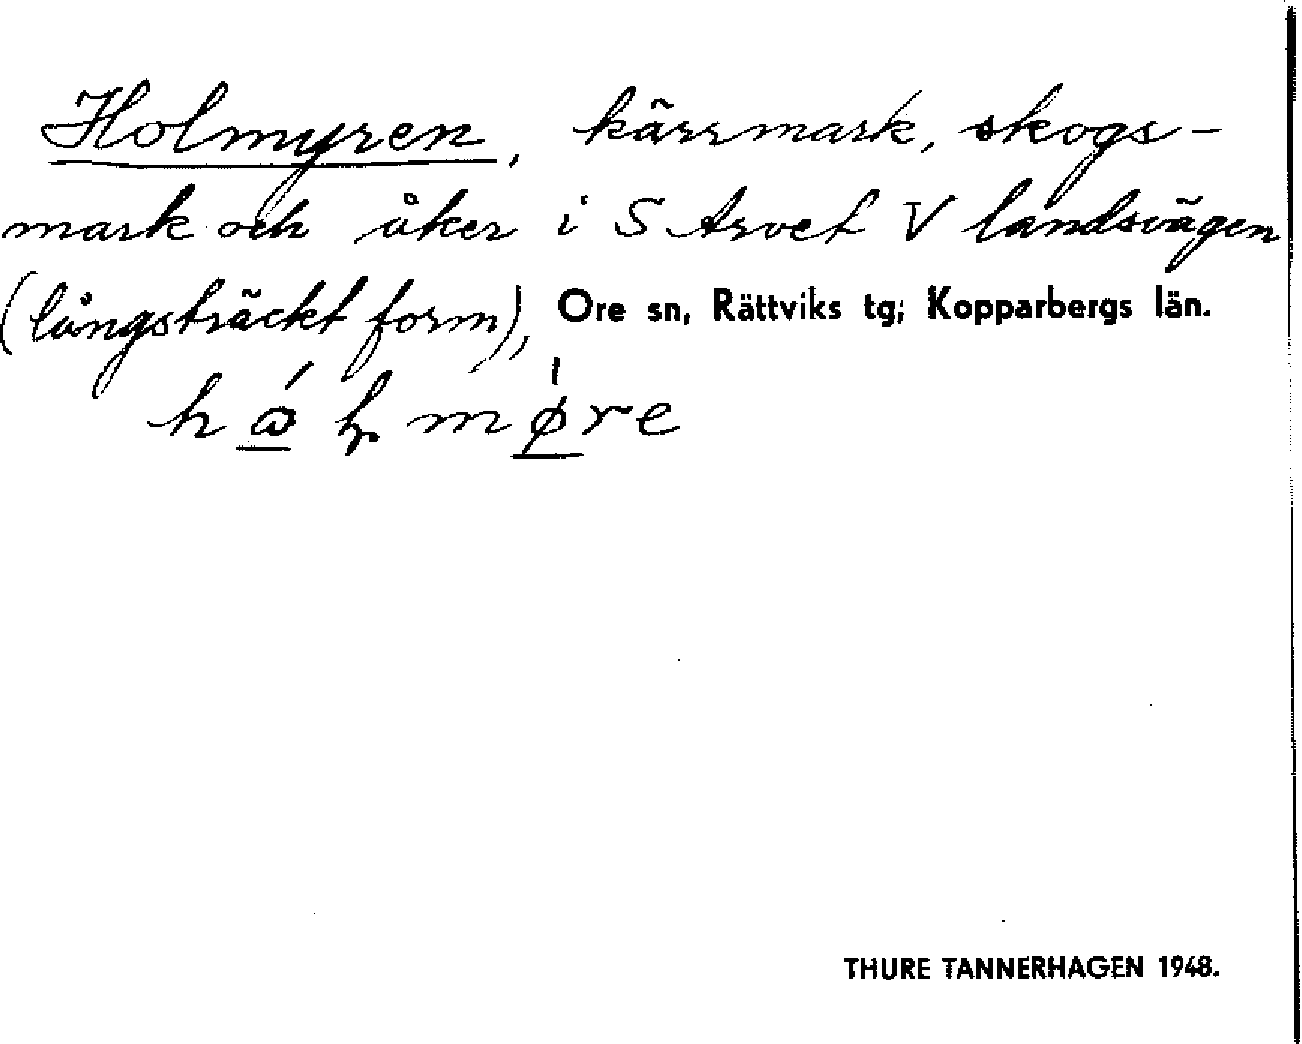 Holmyren, kärrmark, skogs-
mark och åker i S Arvet V landsvägen
(långsträckt form), Ore sn, Rättviks tg; Kopparbergs län.
THURE TANNERHAGEN 1948.